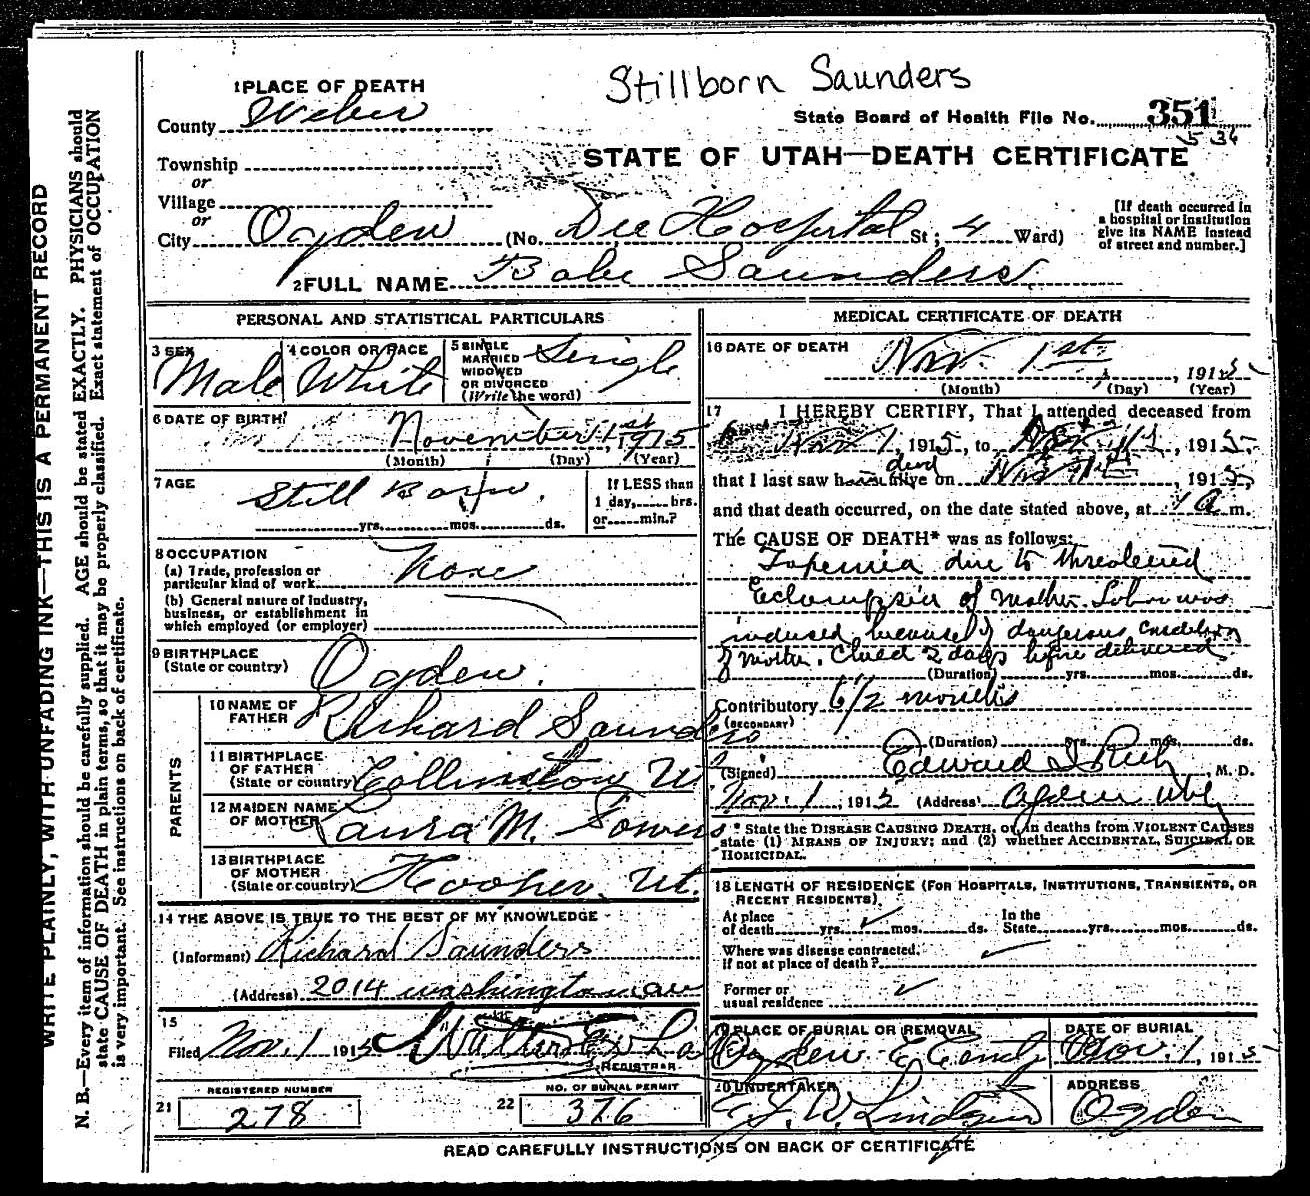 Stillborn Saunders
1 PLACE OF DEATH
County Weber
State Board of Health File No. 351
5 36
STATE OF UTAH—DEATH CERTIFICATE
Township
or
Village
or
City Ogden (No. Dee Hospital St; 4 Ward)
[If death occurred in a hospital or institution give its NAME instead of street and number.]
2 FULL NAME Babe Saunders
PERSONAL AND STATISTICAL PARTICULARS
3 SEX Male
4 COLOR OR RACE White
5 SINGLE MARRIED WIDOWED OR DIVORCED (Write the word) Single
6 DATE OF BIRTH November 1st, 1915
(Month) (Day) (Year)
7 AGE Still Born.
yrs. mos. ds.
If LESS than 1 day, hrs. or min.?
8 OCCUPATION
(a) Trade, profession or particular kind of work None
(b) General nature of Industry, business, or establishment in which employed (or employer)
9 BIRTHPLACE (State or country) Ogden.
PARENTS
10 NAME OF FATHER Richard Saunders
11 BIRTHPLACE OF FATHER (State or country) Collinston Ut
12 MAIDEN NAME OF MOTHER Laura M. Sowers
13 BIRTHPLACE OF MOTHER (State or country) Hooper, Ut.
14 THE ABOVE IS TRUE TO THE BEST OF MY KNOWLEDGE
(Informant) Richard Saunders
(Address) 2014 Washington ave
15
Filed Nov. 1 1915
REGISTRAR
REGISTERED NUMBER
21 278
NO. OF BURIAL PERMIT
22 376
MEDICAL CERTIFICATE OF DEATH
16 DATE OF DEATH Nov. 1st, 1915
(Month) (Day) (Year)
17 I HEREBY CERTIFY, That I attended deceased from
Nov 1, 1915, to Nov 1st, 1915,
that I last saw h alive dead on Nov 1st, 1915,
and that death occurred, on the date stated above, at 1 a m.
The CAUSE OF DEATH* was as follows:
Toxemia due to threatened
Eclampsia of mother. Labor was
induced because of dangerous condition
of mother. Child 2 days before delivered
(Duration) yrs. mos. ds.
Contributory 6 1/2 months
(SECONDARY)
(Duration) yrs. mos. ds.
(Signed) Edward I Rich, M. D.
Nov. 1, 1915 (Address) Ogden Utah
* State the DISEASE CAUSING DEATH, or, in deaths from VIOLENT CAUSES
state (1) MEANS OF INJURY; and (2) whether ACCIDENTAL, SUICIDAL OR
HOMICIDAL.
18 LENGTH OF RESIDENCE (FOR HOSPITALS, INSTITUTIONS, TRANSIENTS, OR
RECENT RESIDENTS)
At place of death yrs. mos. ds. In the State yrs. mos. ds.
Where was disease contracted, If not at place of death?
Former or usual residence
19 PLACE OF BURIAL OR REMOVAL Ogden
DATE OF BURIAL Nov. 1, 1915
20 UNDERTAKER Lindquist
ADDRESS Ogden
READ CAREFULLY INSTRUCTIONS ON BACK OF CERTIFICATE
WRITE PLAINLY, WITH UNFADING INK—THIS IS A PERMANENT RECORD
N. B.—Every item of information should be carefully supplied. AGE should be stated EXACTLY. PHYSICIANS should
state CAUSE OF DEATH in plain terms, so that it may be properly classified. Exact statement of OCCUPATION
is very important. See instructions on back of certificate.